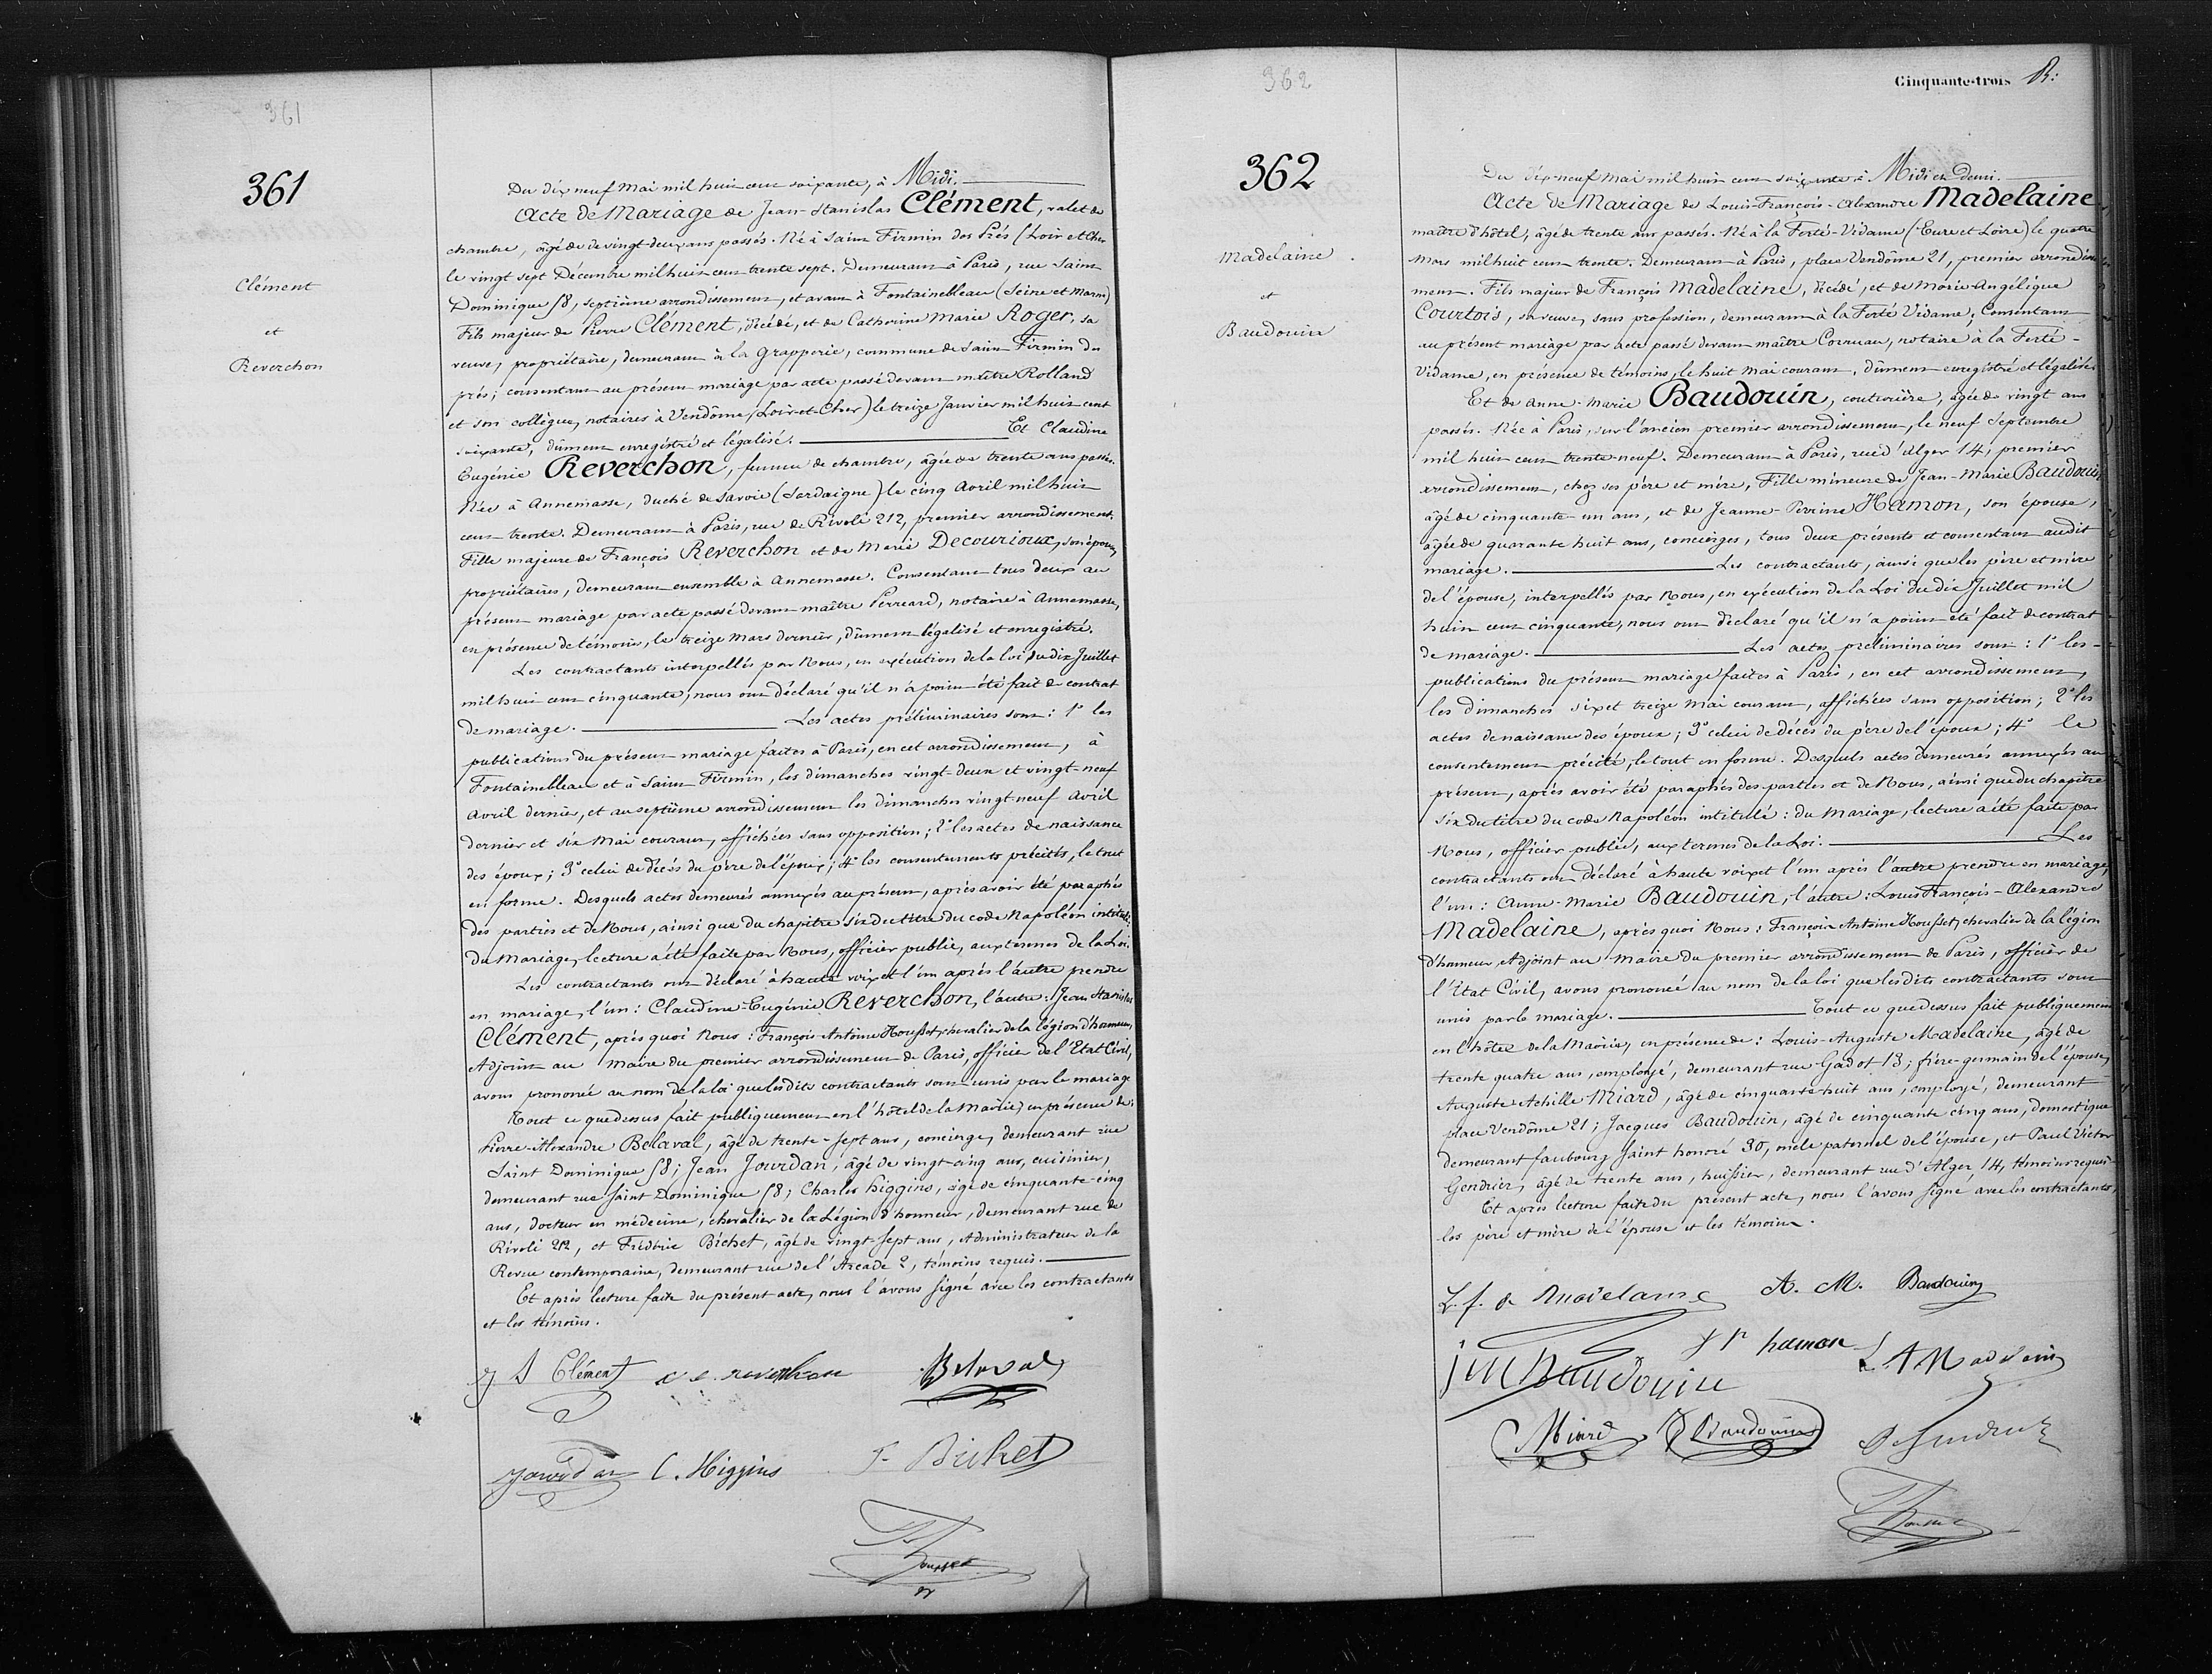 361
361
Clément
et
Reverchon
Du dix neuf Mai mil huit cent soixante, à Midi.
Acte de Mariage de Jean-Stanislas Clément, valet de
chambre, âgé de de vingt-deux ans passés. Né à Saint Firmin des Prés (Loir et Cher
le vingt sept Décembre mil huit cent trente sept. Demeurant à Paris, rue Saint
Dominique 58, septième arrondissement, et avant à Fontainebleau (Seine et Marne)
Fils majeur de Pierre Clément, décédé, et de Catherine Marie Roger, sa
veuve, propriétaire, demeurant à la Grapperie, commune de Saint Firmin des
prés; consentant au présent mariage par acte passé devant maître Rolland
et son collègue, notaires à Vendôme (Loir-et-Cher) le treize Janvier mil huit cent
soixante, dûment enregistré et légalisé. Et Claudine
Eugénie Reverchon, femme de chambre, âgée de trente ans passés.
Née à Annemasse, duché de Savoie (Sardaigne) le cinq Avril mil huit
cent trente. Demeurant à Paris, rue de Rivoli 212, premier arrondissement.
Fille majeure de François Reverchon et de Marie Decourioux, son épouse,
propriétaires, demeurant ensemble à Annemasse. Consentant tous deux au
présent mariage par acte passé devant maître Perreard, notaire à Annemasse,
en présence de témoins, le treize Mars dernier, dûment légalisé et enregistré.
Les contractants interpellés par Nous, en exécution de la loi du dix Juillet
mil huit cent cinquante, nous ont déclaré qu'il n'a point été fait de contrat
de mariage. Les actes préliminaires sont: 1° les
publications du présent mariage faites à Paris, en cet arrondissement, à
Fontainebleau et à Saint Firmin, les dimanches vingt-deux et vingt-neuf
Avril dernier, et au septième arrondissement les dimanches vingt neuf Avril
dernier et six Mai courant, affichées sans opposition; 2° les actes de naissance
des époux; 3° celui de décès du père de l'époux; 4° les consentements précités, le tout
en forme. Desquels actes demeurés annexés au présent, après avoir été paraphés
des parties et de Nous, ainsi que du chapitre six du titre du code Napoléon intitulé:
du Mariage, lecture a été faite par Nous, officier public, aux termes de la Loi.
Les contractants ont déclaré à haute voix et l'un après l'autre prendre
en mariage, l'un: Claudine-Eugénie Reverchon, l'autre: Jean Stanislas
Clément, après quoi Nous: François-Antoine Housset, chevalier de la légion d'honneur,
Adjoint au Maire du premier arrondissement de Paris, officier de l'Etat Civil,
avons prononcé au nom de la loi que lesdits contractants sont unis par le mariage
Tout ce que dessus fait publiquement en l'hôtel de la Mairie, en présence de:
Pierre-Alexandre Belaval, âgé de trente-sept ans, concierge, demeurant rue
Saint Dominique 58; Jean Jourdan, âgé de vingt-cinq ans, cuisinier,
demeurant rue Saint Dominique 58; Charles Higgins, âgé de cinquante-cinq
ans, docteur en médecine, chevalier de la Légion d'honneur, demeurant rue de
Rivoli 212, et Frédéric Bichet, âgé de vingt-sept ans, Administrateur de la
Revue contemporaine, demeurant rue de l'Arcade 2, témoins requis.
Et après lecture faite du présent acte, nous l'avons signé avec les contractants
et les témoins.
J S Clément c e reverchon Belaval
Jourdan C. Higgins F. Bichet
Housset
362
Cinquante-trois
362
Madelaine
et
Baudouin
Du dix-neuf Mai mil huit cent soixante à Midi et Demi.
Acte de Mariage de Louis-François-Alexandre Madelaine
maître d'hôtel, âgé de trente ans passés. Né à la Ferté-Vidame (Eure et Loire) le quatre
Mars mil huit cent trente. Demeurant à Paris, place Vendôme 21, premier arrondisse
ment. Fils majeur de François Madelaine, décédé, et de Marie Angélique
Courtois, sa veuve, sans profession, demeurant à la Ferté Vidame; Consentant
au présent mariage par acte passé devant maître Cornuau, notaire à la Ferté-
Vidame, en présence de témoins, le huit Mai courant, dûment enregistré et légalisé.
Et de Anne-Marie Baudouin, couturière, âgée de vingt ans
passés. Née à Paris, sur l'ancien premier arrondissement, le neuf Septembre
mil huit cent trente-neuf. Demeurant à Paris, rue d'Alger 14, premier
arrondissement, chez ses père et mère, Fille mineure de Jean-Marie Baudouin
âgé de cinquante-un ans, et de Jeanne-Perrine Hamon, son épouse,
âgée de quarante huit ans, concierges, tous deux présents et consentant audit
mariage. Les contractants, ainsi que les père et mère
de l'épouse, interpellés par Nous, en exécution de la Loi du dix Juillet mil
huit cent cinquante, nous ont déclaré qu'il n'a point été fait de contrat
de mariage. Les actes préliminaires sont: 1° les
publications du présent mariage faites à Paris, en cet arrondissement,
les dimanches six et treize Mai courant, affichées sans opposition; 2° les
actes de naissance des époux; 3° celui de décès du père de l'époux; 4° le
consentement précité, le tout en forme. Desquels actes demeurés annexés au
présent, après avoir été paraphés des parties et de Nous, ainsi que du chapitre
six du titre du code Napoléon intitulé: du Mariage, lecture a été faite par
Nous, officier public, aux termes de la Loi. Les
contractants ont déclaré à haute voix et l'un après l'autre prendre en mariage,
l'un: Anne-Marie Baudouin, l'autre: Louis François-Alexandre
Madelaine, après quoi Nous: François Antoine Housset, chevalier de la légion
d'honneur, Adjoint au Maire du premier arrondissement de Paris, officier de
l'Etat Civil, avons prononcé au nom de la loi que lesdits contractants sont
unis par le mariage. Tout ce que dessus fait publiquement
en l'hôtel de la Mairie, en présence de: Louis-Auguste Madelaine, âgé de
trente quatre ans, employé, demeurant rue Gadot 13; frère-germain de l'époux,
Auguste-Achille Miard, âgé de cinquante-huit ans, employé, demeurant
place Vendôme 21; Jacques Baudouin, âgé de cinquante cinq ans, domestique
demeurant faubourg Saint honoré 30, oncle paternel de l'épouse, et Paul Victor
Gendrier, âgé de trente ans, huissier, demeurant rue d'Alger 14, témoins requis.
Et après lecture faite du présent acte, nous l'avons signé avec les contractants,
les père et mère de l'épouse et les témoins.
L. f. a Madelaine A. M. Baudouin
j m Baudouin hamon L A Madelaine
Miard Baudouin
Housset